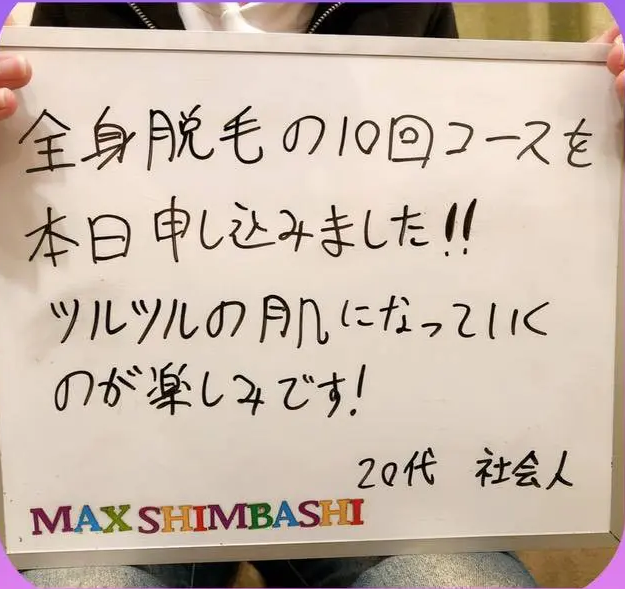 全身脱毛の10回コースを
本日申し込みました!!
ツルツルの肌になっていく
のが楽しみです!
20代 社会人
MAX SHIMBASHI